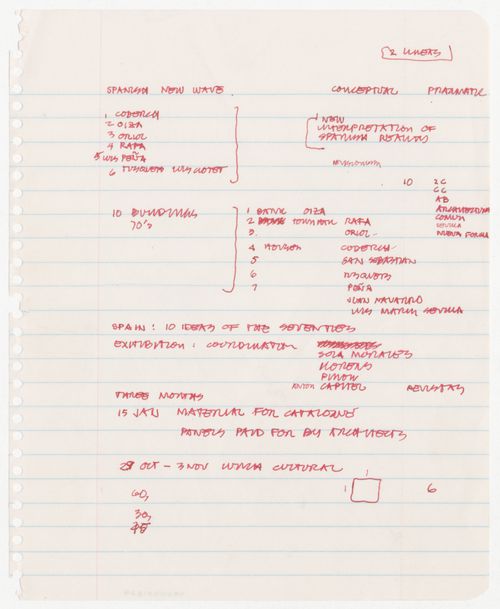 2 LINEAS
SPANISH NEW WAVE CONCEPTUAL PRAGMATIC
1 CODERCH
2 OIZA
3 ORIOL
4 RAFA
5 LUIS PEÑA
6 TUSQUETS LUIS CLOTET
1 NEW
INTERPRETATION OF
SPANISH REALITIES
10 2C
CC
AB
ARQUITECTURA
COMUN
SEVILLA
NUEVA FORMA
10 BUILDINGS
70's
1 BANK OIZA
2 TOWNHALL RAFA
3. ORIOL
4 HOUSES CODERCH
5 SAN SEBASTIAN
6 TUSQUETS
7 PEÑA
JUAN NAVARRO
LUIS MARIN SEVILLA
SPAIN: 10 IDEAS OF THE SEVENTIES
EXHIBITION: COORDINATION
SOLA MORALES
LLORENS
PIÑON
ANTON CAPITEL REVISTAS
THREE MONTHS
15 JAN MATERIAL FOR CATALOGUE
PANELS PAID FOR BY ARCHITECTS
29 OCT - 3 NOV CULTURAL
1
1 6
60,
30,
45